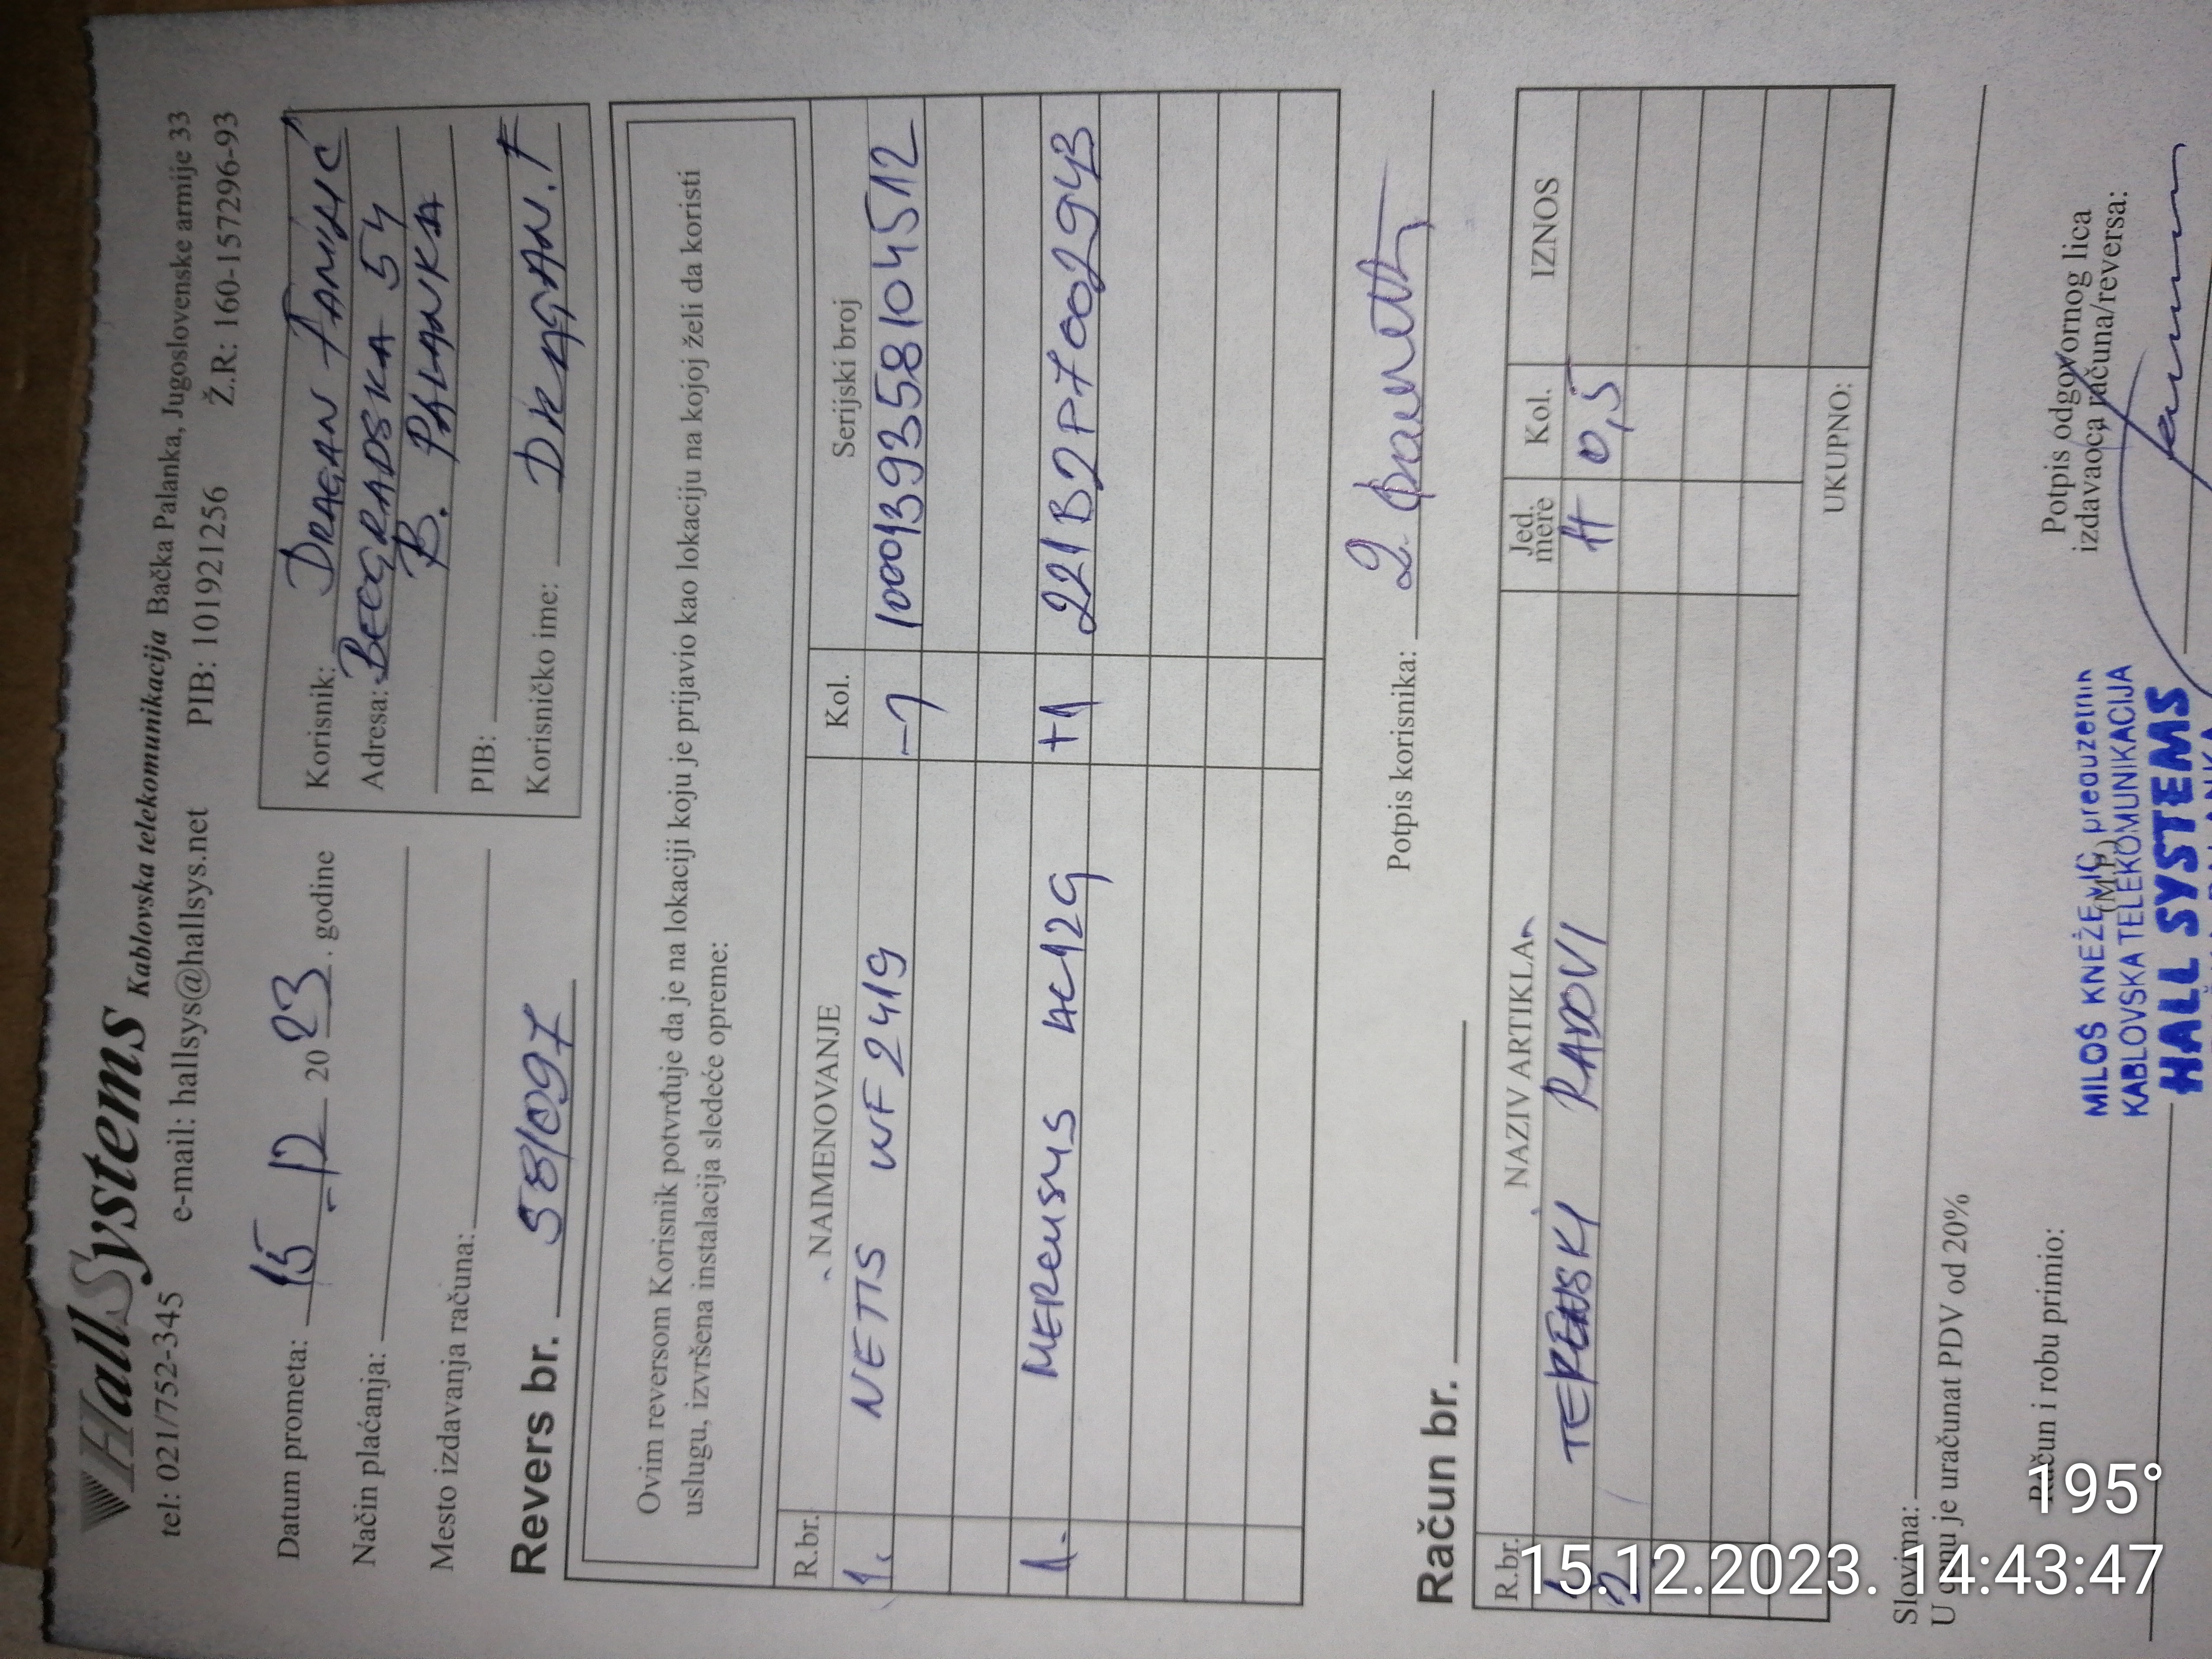 HallSystems Kablovska telekomunikacija Bačka Palanka, Jugoslovenske armije 33
tel: 021/752-345 e-mail: hallsys@hallsys.net PIB: 101921256 Ž.R: 160-157296-93
Datum prometa: 15 - 12 2023. godine
Način plaćanja:
Mesto izdavanja računa:
Revers br. 58/097
Korisnik: DRAGAN
Adresa: BEOGRADSKA 54
B. PALANKA
PIB:
Korisničko ime: DRAGAN.F
Ovim reversom Korisnik potvrđuje da je na lokaciji koju je prijavio kao lokaciju na kojoj želi da koristi
uslugu, izvršena instalacija sledeće opreme:
R.br. NAIMENOVANJE Kol. Serijski broj
1. NETIS WF2419 -1 1000139358104512
1. MERCUSYS AC12G +1 221B2P7002943
Potpis korisnika:
Račun br.
R.br. NAZIV ARTIKLA Jed. mere Kol. IZNOS
1 TERENSKI RADOVI H 0,5
2
UKUPNO:
Slovima:
U cenu je uračunat PDV od 20%
Račun i robu primio:
(M.P.)
Potpis odgovornog lica
izdavaoca računa/reversa:
MILOŠ KNEŽEVIĆ preduzetnik
KABLOVSKA TELEKOMUNIKACIJA
HALL SYSTEMS
195°
15.12.2023. 14:43:47